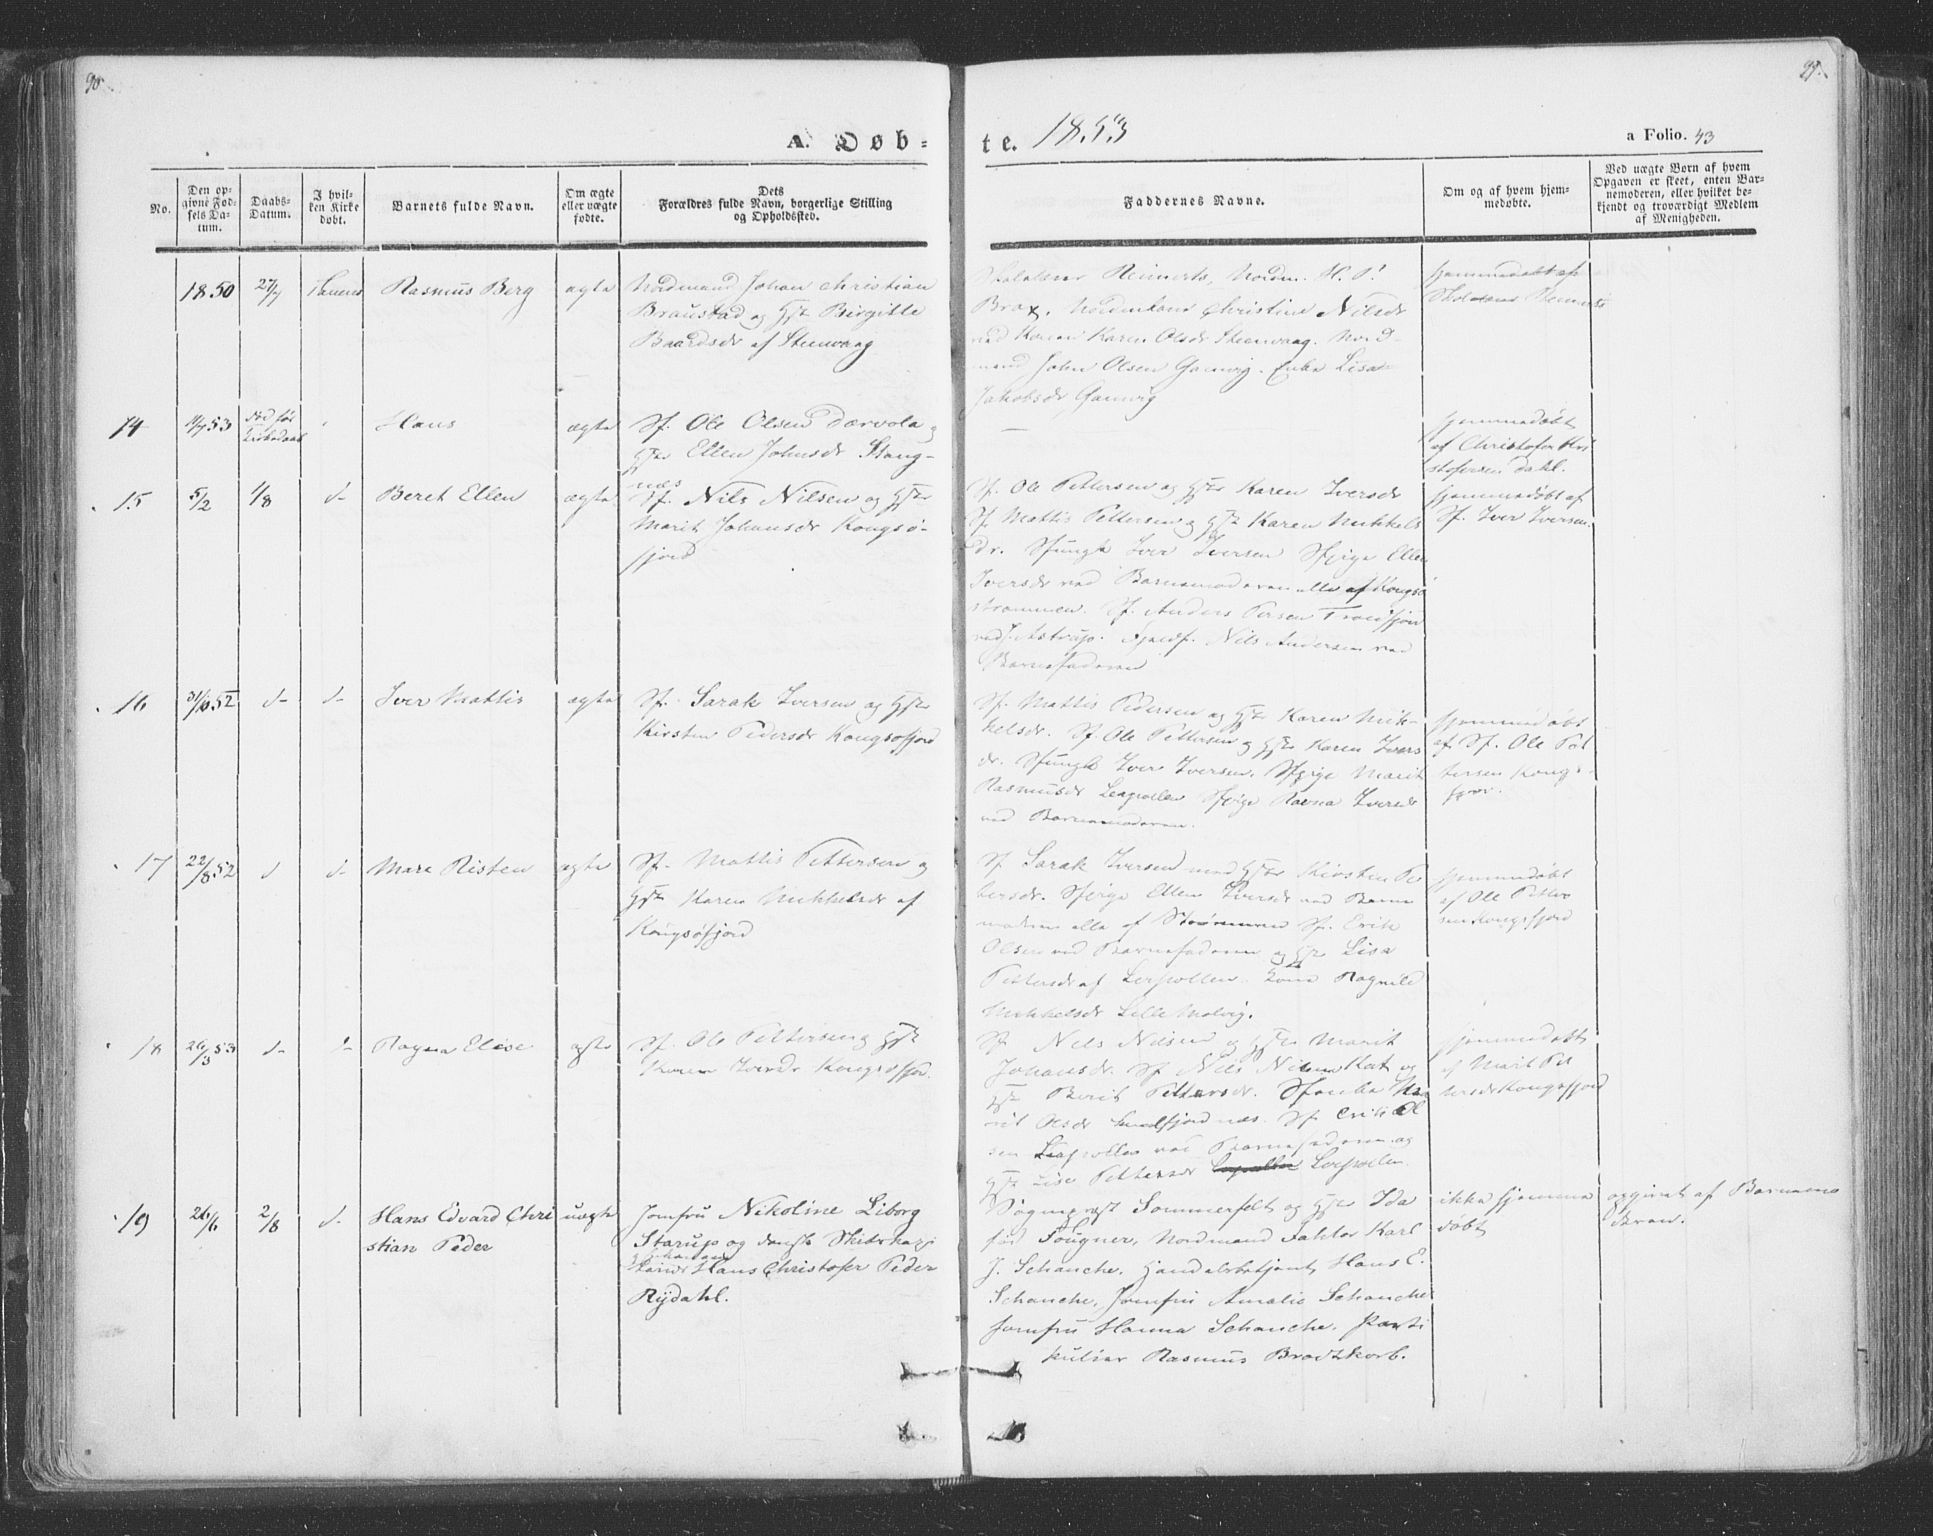 90.
A. Døb-
te. 1853
a Folio. 43
No.
Den op-
givne Fød-
sels Da-
tum.
Daabs-
Datum.
I hvil-
ken Kirke
døbt.
Barnets fulde Navn.
Om ægte
eller uægte
fødte.
Dets
Forældres fulde Navn, borgerlige Stilling
og Opholdssted.
Faddernes Navne.
Om og af hvem hjem-
medøbte.
Ved uægte Børn af hvem
Opgaven er skeet, enten Bar-
nemoderen, eller hvilket be-
kjendt og troværdigt Medlem
af Menigheden.
1850 27/7 Rasmus Berg ægte
Nordmand Johan Christian
Braustad og Hst Birgitte
Baardsdr af Steenvaag
Reimerts, Nordm.
Brox, Christine Nilsdr
ved Konen Karen Olsdr Steenvaag. Nord-
mand John Olsen Gamvig. Enke Lisa
Jakobsdr Gamvig
hjemmedøbt af
14 53 død før
Kirkedaab
Hans ægte
Sf. Ole Olsen Dærvola og
Hst Ellen Johnsdr Stang-
næs
hjemmedøbt
af Christofer Kri
stofersen Dahl.
15 5/2 1/8 d- Beret Ellen ægte
Sf. Nils Nilsen og Hst
Marit Johansdr Kongsø-
fjord
Sf. Ole Pettersen og Hst Karen Iversdr
Sf. Mattis Pettersen og Hst Karen Mikkels
dr. Sfungk Iver Iversen Sfpige Ellen
Iversdr ved Barnemoderen alle af Kongsø
strømmen. Sf. Anders Persen
Nils Andersen ved
Barnefaderen
hjemmedøbt af
Sf. Iver Iversen.
16 31/10 52 d- d- Iver Mattis ægte
Sf. Sarak Iversen og Hst
Kirsten Pedersdr Kongsøfjord
Sf. Mattis Pedersen og Hst Karen Mik-
kelsdr. Sf Ole Pettersen og Hst Karen Ivers
dr. Sfungk Iver Iversen. Sfpige Marit
Rasmusdr Leirpollen Sfpige Ravna Iversdr
ved Barnemoderen.
hjemmedøbt
af Sf. Ole Pet
tersen Kongs-
fjor.
17 22/8 52 d d- Mare Risten ægte
Sf. Mattis Pettersen og
Hst Karen Mikkelsdr af
Kongsøfjord
Sf Sarak Iversen med Hst Kirsten Pe
dersdr. Sfpige Ellen Iversdr ved Barne
moderen alle af Strømmen Sf. Erik
Olsen ved Barnefaderen og Hst Lisa
Pettersdr af Leirpollen. Kona Ragnild
Mikkelsdr Lille Molvig.
hjemmedøbt
af Ole Petter
sen Kongsfjord
18 26/3 53 d- d- Ragna Elise ægte
Sf. Ole Pettersen og Hst
Karen Iversdr Kongsøfjor.
Sf Nils Nilsen og Hst Marit
Johansdr. Sf Nils Nilsen Kat og
Hst Berit Pettersdr. Sfenke Ma
rit Olsdr. Sf. Erik Ol
sen Leirpollen ved Barnefaderen og
Hst Lise Pettersdr Leirpollen.
hjemmedøbt
af Marit Pet
tersdr Kongsfjord
19 26/6 2/8 d- Hans Edvard Chri
stian Peder
uægte
Jomfru Nikoline Liborg
Starup og dansk Skibskap-
Hans Christofer Peder
Rydahl.
Sogneprest Sommerfelt og Hst Ida
fød Fougner, Nordmand Faktor Karl
J. Schanche. Handelsbetjent Hans E.
Schanche, Jomfru Amalie Schanche
Jomfru Hanna Schanche. Parti
kulier Rasmus Brodtkorb.
ikke hjemme
døbt
opgivet af Barnemo
deren.